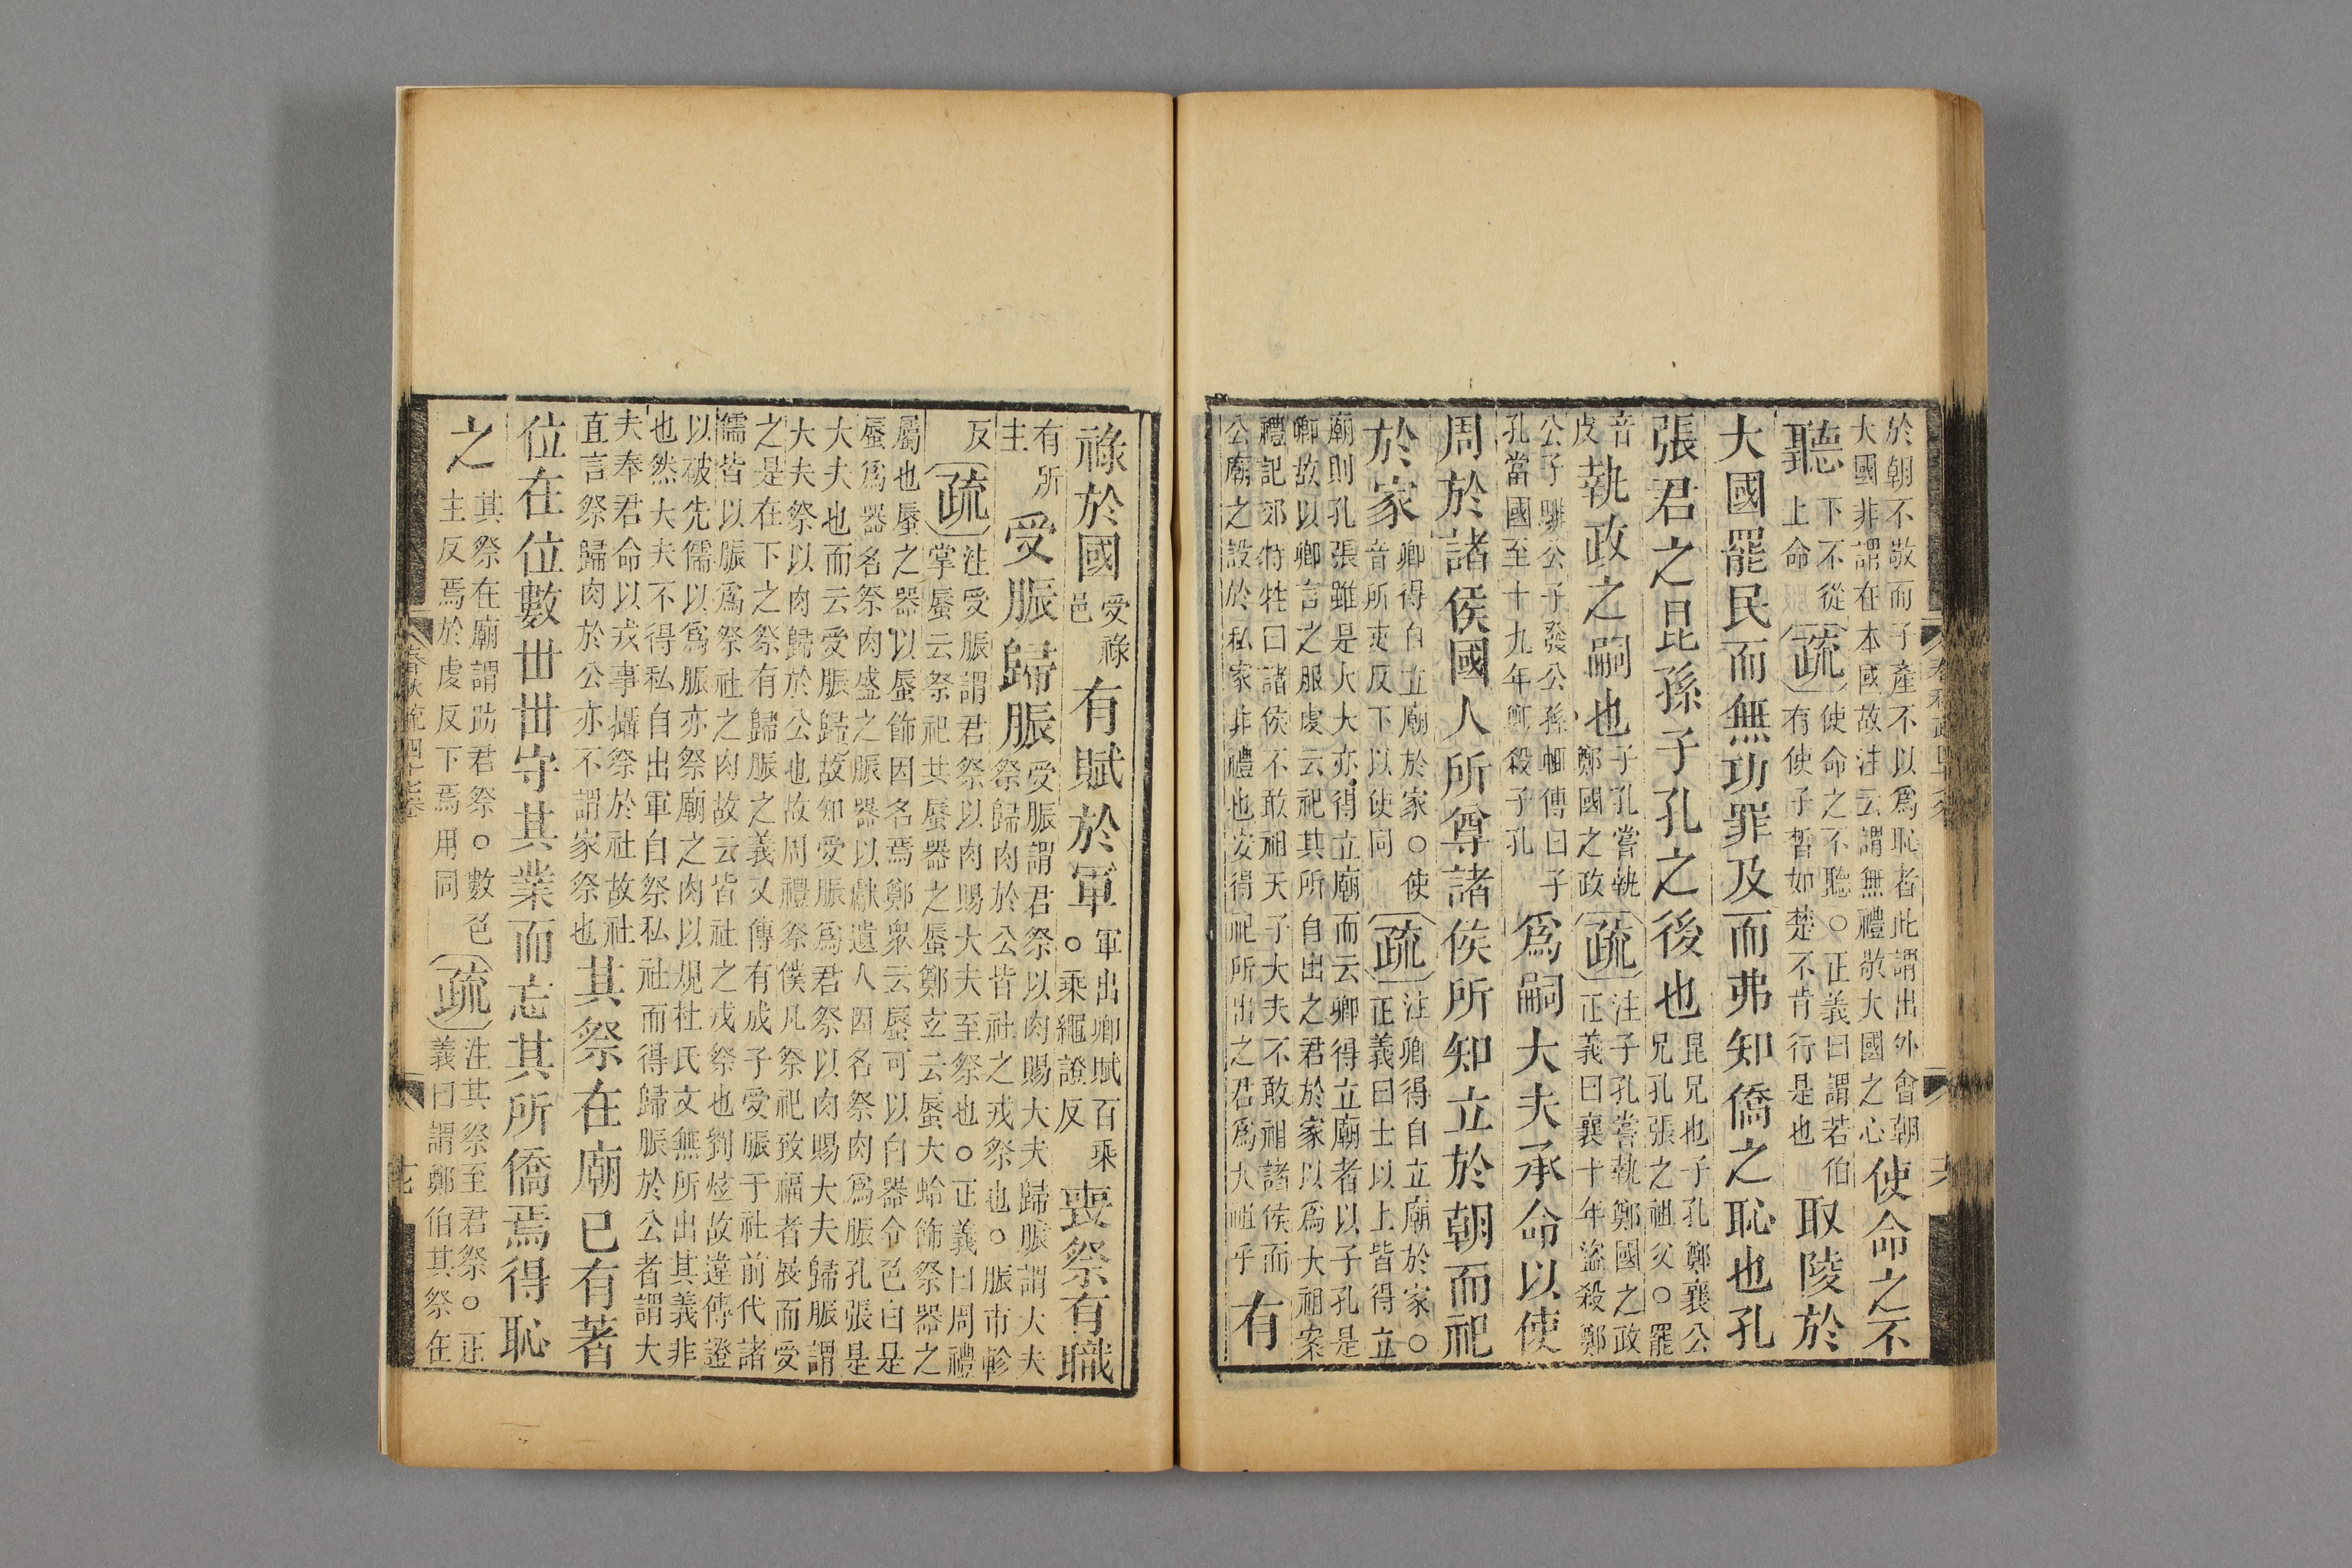 於朝不敬而子產不以爲恥者此謂出外會朝
大國非謂在本國故注云謂無禮敬大國之心
使命之不
聽
下不從
上命
疏
使命之不聽○正義曰謂若伯
有使子晳如楚不肯行是也
取陵於
大國罷民而無功罪及而弗知僑之恥也孔
張君之昆孫子孔之後也
昆兄也子孔鄭襄公
兄孔張之祖父○罷
音
皮
執政之嗣也
子孔嘗執
鄭國之政
疏
注子孔嘗執鄭國之政
正義曰襄十年盜殺鄭
公子騑公子發公孫輒傳曰子
孔當國至十九年鄭殺子孔
爲嗣大夫承命以使
周於諸侯國人所尊諸侯所知立於朝而祀
於家
卿得自立廟於家○使
音所吏反下以使同
疏
注卿得自立廟於家○
正義曰士以上皆得立
廟則孔張雖是大夫亦得立廟而云卿得立廟者以子孔是
卿故以卿言之服虔云祀其所自出之君於家以爲大祖案
禮記郊特牲曰諸侯不敢祖天子大夫不敢祖諸侯而
公廟之設於私家非禮也安得祀所出之君爲大祖乎
有
祿於國
受祿
邑
有賦於軍
軍出卿賦百乘
○乘繩證反
喪祭有職
有所
主
受脤歸脤
受脤謂君祭以肉賜大夫歸脤謂大夫
祭歸肉於公皆社之戎祭也○脤市軫
反
疏
注受脤謂君祭以肉賜大夫至祭也○正義曰周禮
掌蜃云祭祀其蜃器之蜃鄭玄云蜃大蛤飾祭器之
屬也蜃之器以蜃飾因名焉鄭衆云蜃可以白器令色白是
蜃爲器名祭肉盛之脤器以獻遺人因名祭肉爲脤孔張是
大夫也而云受脤歸故知受脤爲君祭以肉賜大夫歸脤謂
大夫祭以肉歸於公也故周禮祭僕凡祭祀致福者展而受
之是在下之祭有歸脤之義又傳有成子受脤于社前代諸
儒皆以脤爲祭社之肉故云皆社之戎祭也劉炫故違傳證
以破先儒以爲脤亦祭廟之肉以規杜氏文無所出其義非
也然大夫不得私自出軍自祭私社而得歸脤於公者謂大
夫奉君命以戎事攝祭於社故社
直言祭歸肉於公亦不謂家祭也
其祭在廟已有著
位在位數丗丗守其業而忘其所僑焉得恥
之
其祭在廟謂助君祭○數色
主反焉於虔反下焉用同
疏
注其祭至君祭○正
義曰謂鄭伯其祭在
春秋疏四十七卷